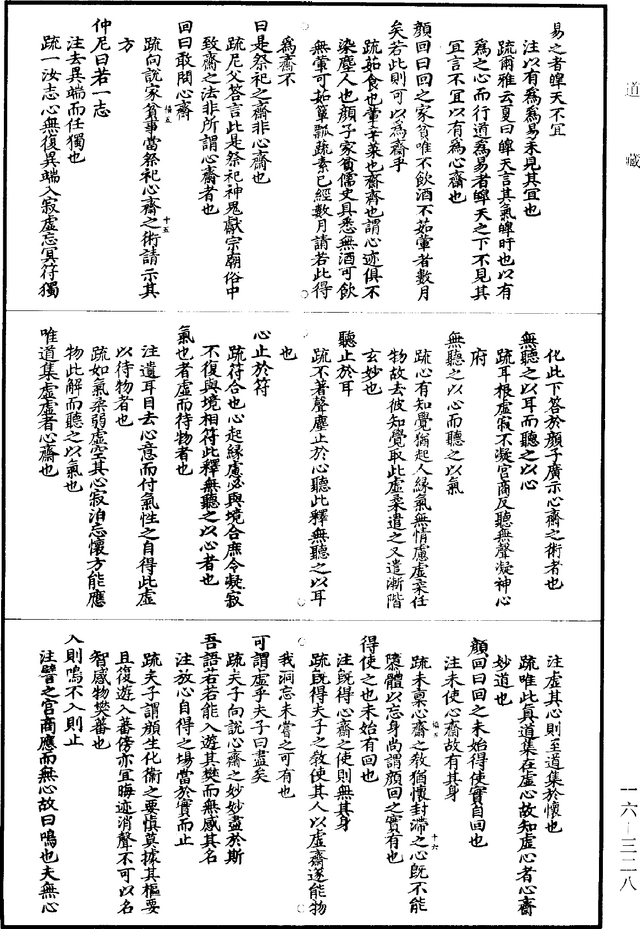 道藏
易之者皞天不宜
注以有爲爲易未見其宜也
疏爾雅云夏曰皞天言其氣皞旰也以有
爲之心而行道爲易者皞天之下不見其
宜言不宜以有爲心齋也
顏回曰回之家貧唯不飲酒不茹葷者數月
矣若此則可以爲齋乎
疏茹食也葷辛菜也齋齊也謂心迹俱不
染塵人也顏子家貧儒史具悉無酒可飲
無葷可茹簞瓢蔬素已經數月請若此得
爲齋不
曰是祭祀之齋非心齋也
疏尼父答言此是祭祀神鬼獻宗廟俗中
致齋之法非所謂心齋者也
回曰敢問心齋
疏向說家貧事當祭祀心齋之術請示其
方
仲尼曰若一志
注去異端而任獨也
疏一汝志心無復異端入寂虛忘冥符獨
化此下答於顏子廣示心齋之術者也
無聽之以耳而聽之以心
疏耳根虛寂不凝宮商反聽無聲凝神心
府
無聽之以心而聽之以氣
疏心有知覺猶起人緣氣無情慮虛柔任
物故去彼知覺取此虛柔遣之又遣漸階
玄妙也
聽止於耳
疏不著聲塵止於心聽此釋無聽之以耳
也
心止於符
疏符合也心起緣慮必與境合庶令凝寂
不復與境相符此釋無聽之以心者也
氣也者虛而待物者也
注遣耳目去心意而付氣性之自得此虛
以待物者也
疏如氣柔弱虛空其心寂泊忘懷方能應
物此解而聽之以氣也
唯道集虛虛者心齋也
注虛其心則至道集於懷也
疏唯此真道集在虛心故知虛心者心齋
妙道也
顏回曰回之未始得使實自回也
注未使心齋故有其身
疏未稟心齋之敎猶懷封滯之心旣不能
隳體以忘身尚謂顏回之實有也
得使之也未始有回也
注旣得心齋之使則無其身
疏旣得夫子之敎使其人以虛齋遂能物
我洞忘未嘗之可有也
可謂虛乎夫子曰盡矣
疏夫子向說心齋之妙妙盡於斯
吾語若若能入遊其樊而無感其名
注放心自得之場當於實而止
疏夫子謂顏生化衞之要愼莫據其樞要
且復遊入蕃傍亦宜晦迹消聲不可以名
智感物樊蕃也
入則鳴不入則止
注譬之宮商應而無心故曰鳴也夫無心
一六—三二八